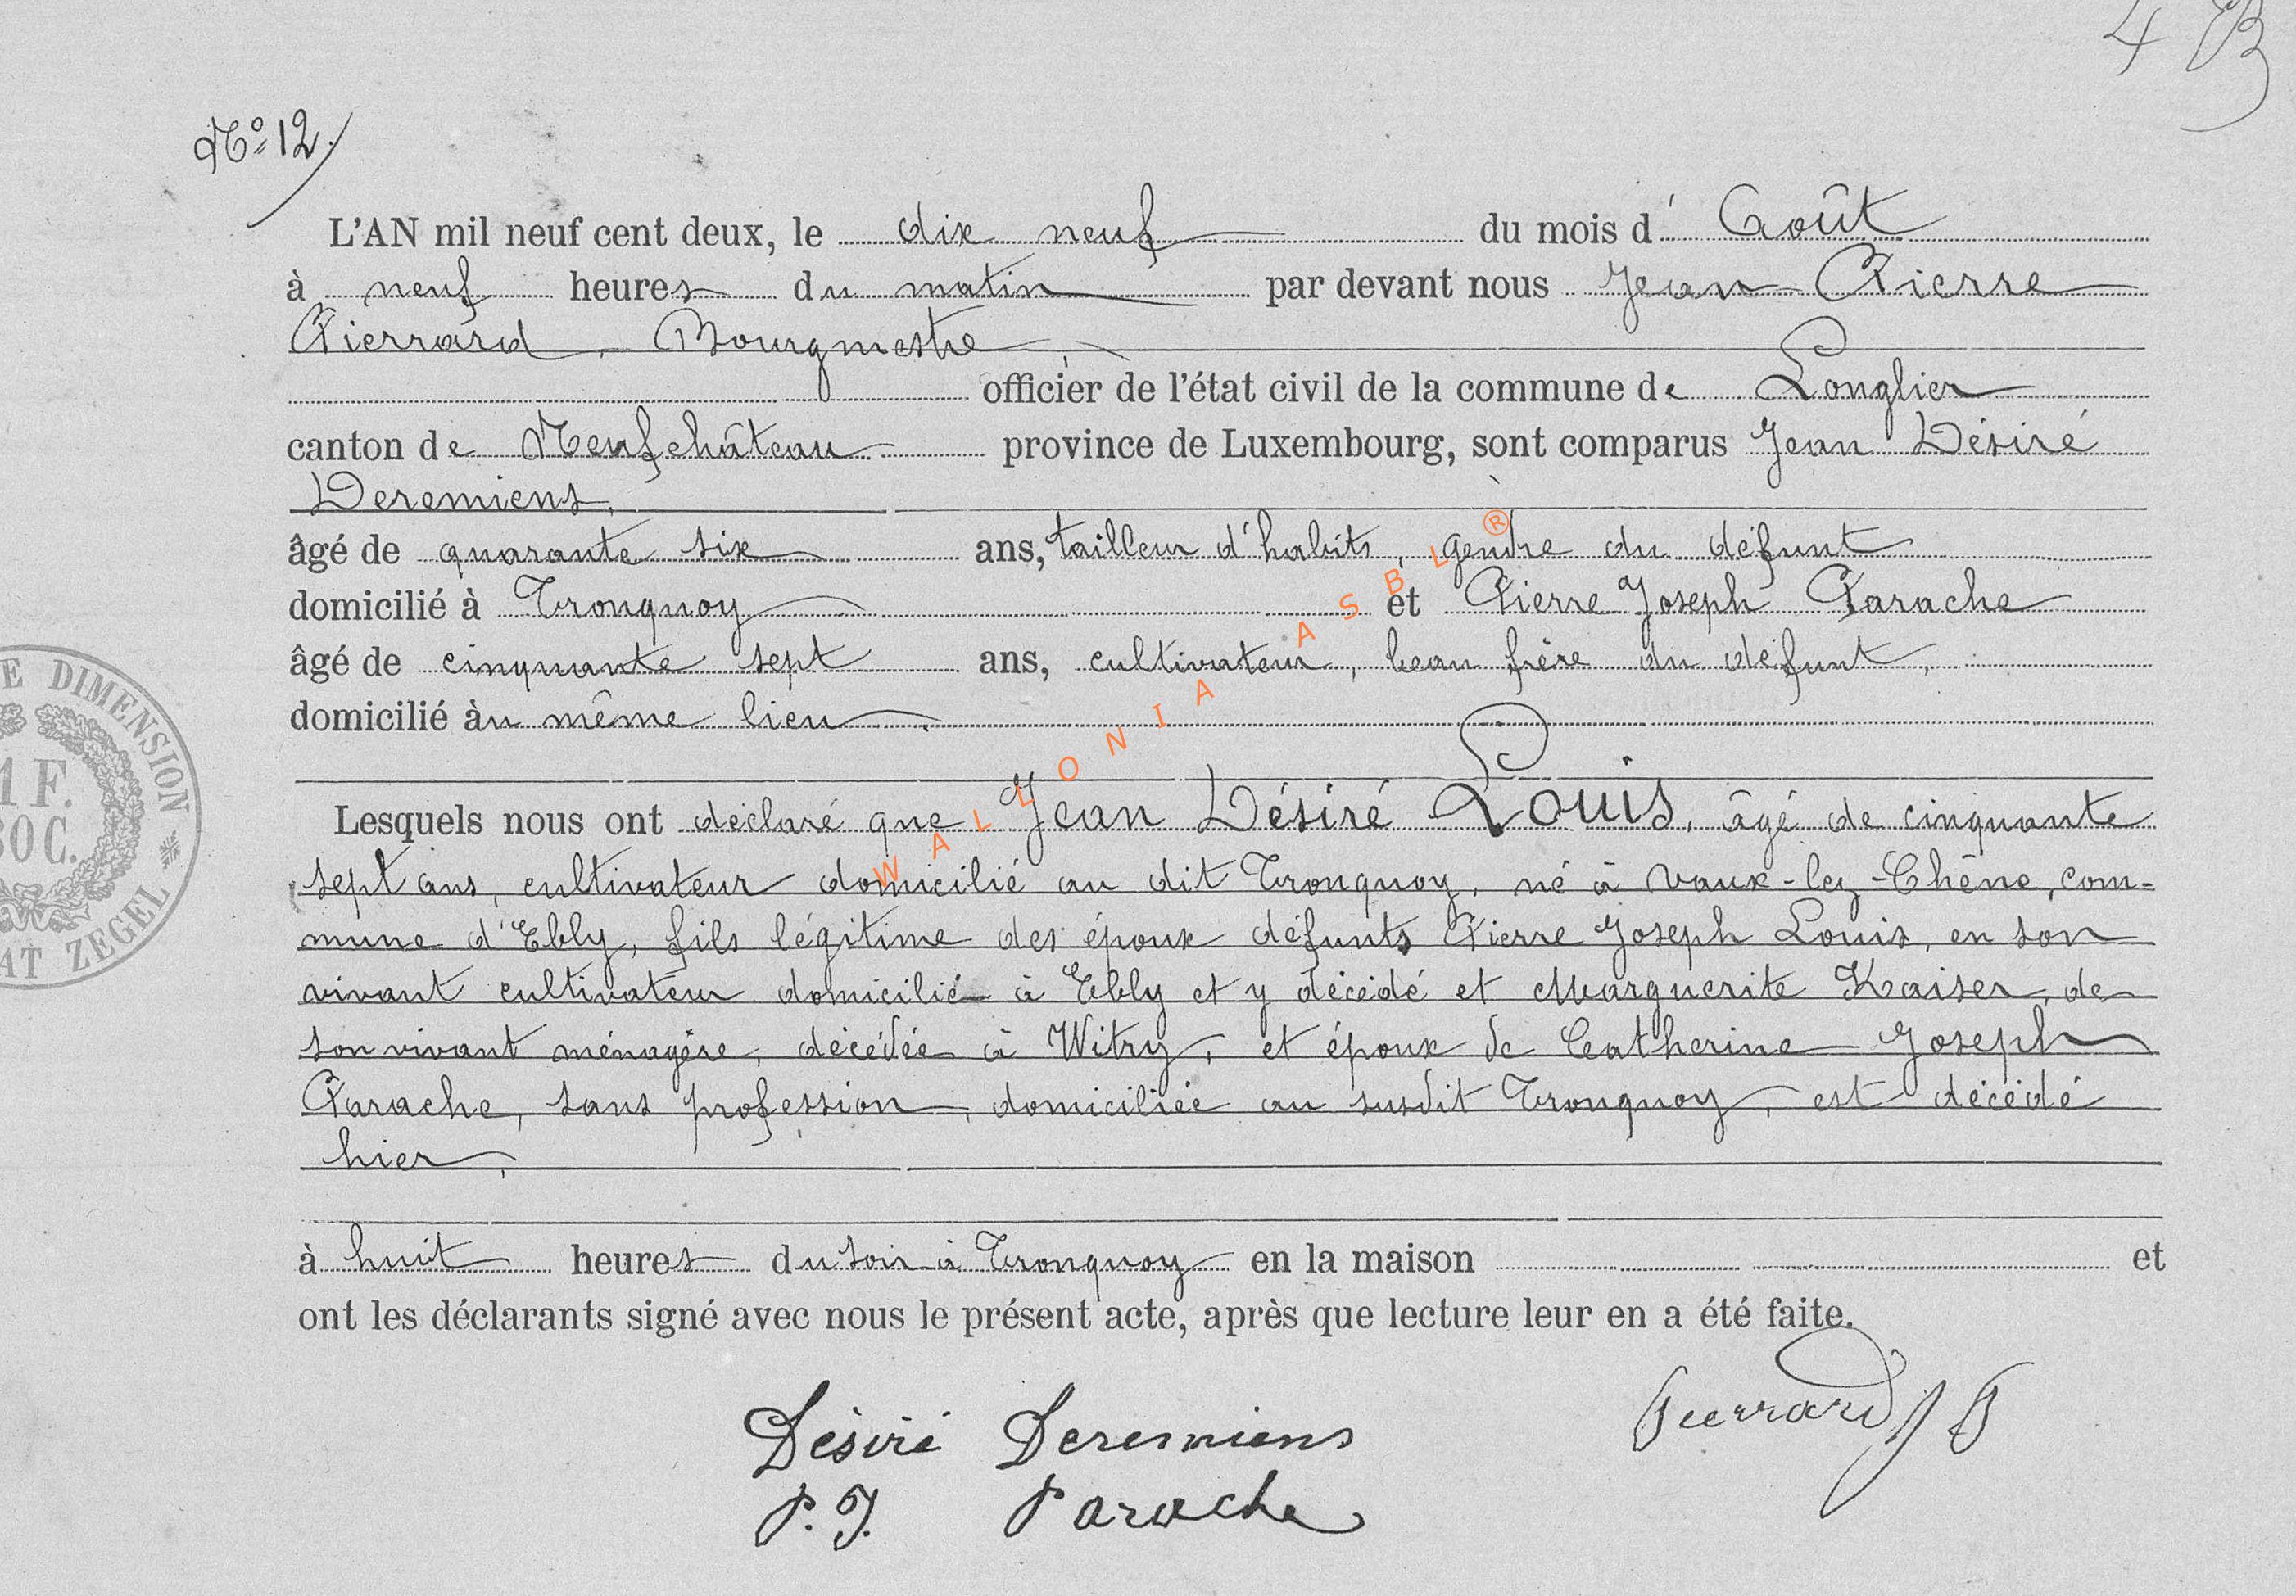 4 B
Nº 12.
L'AN mil neuf cent deux, le dix neuf du mois d' Août
à neuf heures du matin par devant nous Jean Pierre
Pierrard, Bourgmestre,
officier de l'état civil de la commune de Longlier
canton de Neufchâteau province de Luxembourg, sont comparus Jean Désiré
Deremiens,
âgé de quarante six ans, tailleur d'habits, gendre du défunt
domicilié à Tronquoy et Pierre Joseph Parache
âgé de cinquante sept ans, cultivateur, beau frère du défunt,
domicilié àu même lieu.
Lesquels nous ont déclaré que Jean Désiré Louis, âgé de cinquante
sept ans, cultivateur domicilié au dit Tronquoy, né à Vaux-lez-Chêne, com=
mune d'Ebly, fils légitime des époux défunts Pierre Joseph Louis, en son
vivant cultivateur domicilié à Ebly et y décédé et Marguerite Kaiser, de
son vivant ménagère, décédée à Witry, et époux de Catherine Joseph
Parache, sans profession, domiciliée au susdit Tronquoy, est décédé
hier,
à huit heures du soir à Tronquoy en la maison et
ont les déclarants signé avec nous le présent acte, après que lecture leur en a été faite.
Désiré Deremiens
P. J. Parache
Pierrard J P
E DIMENSION
1 F.
30 C.
AT ZEGEL
WALLONIA ASBL ®